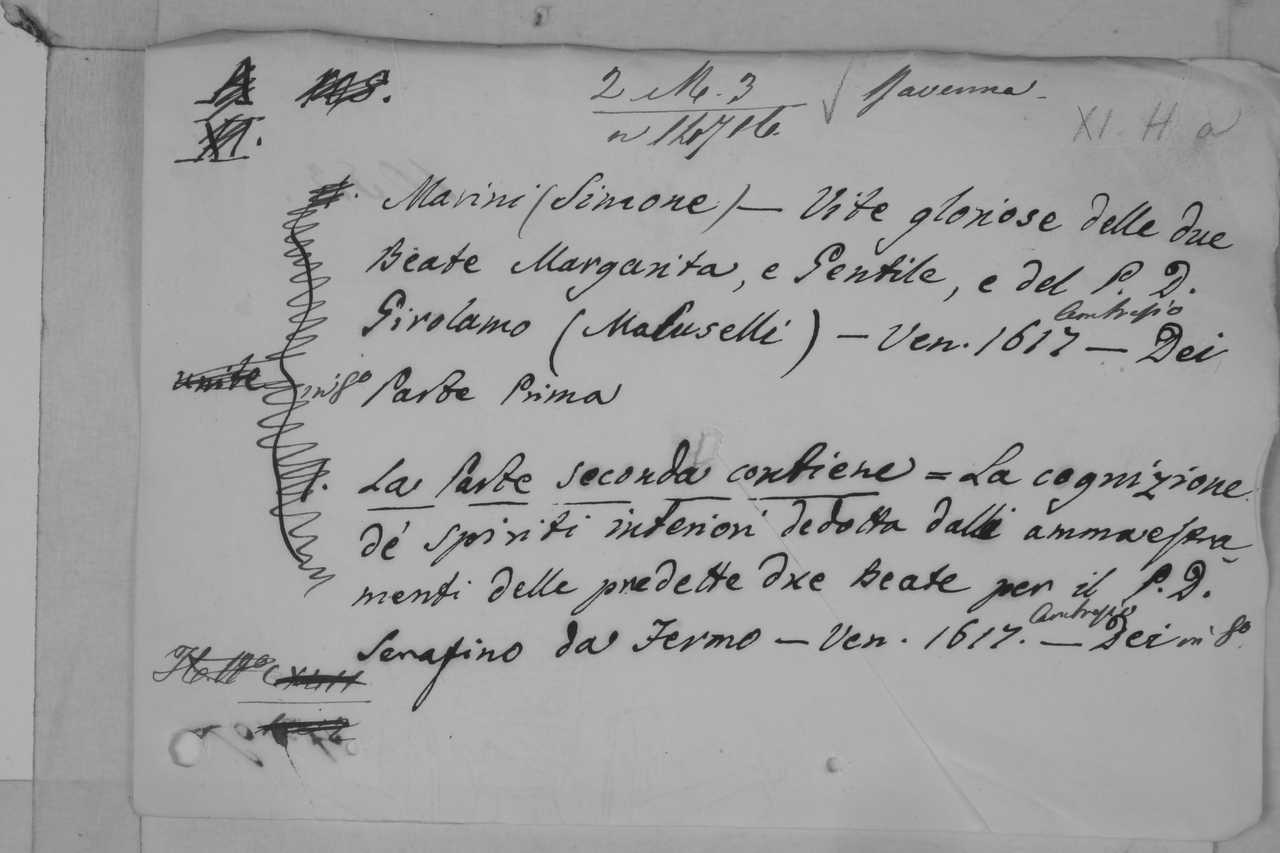 2 M. 3 Ravenna
XI. H a
XI.
Marini (Simone) — Vite gloriose delle due
Beate Margarita, e Gentile, e del P. D.
Girolamo (Maluselli) — Ven. 1617 — Ambrosio Dei
unite in 8º Parte Prima
La Parte seconda contiene = La cognizione
dé spiriti interiori dedotta dalli ammaestra-
menti delle predette due Beate per il P. D.
Serafino da Fermo — Ven. 1617. — Ambrosio Dei in 8º.